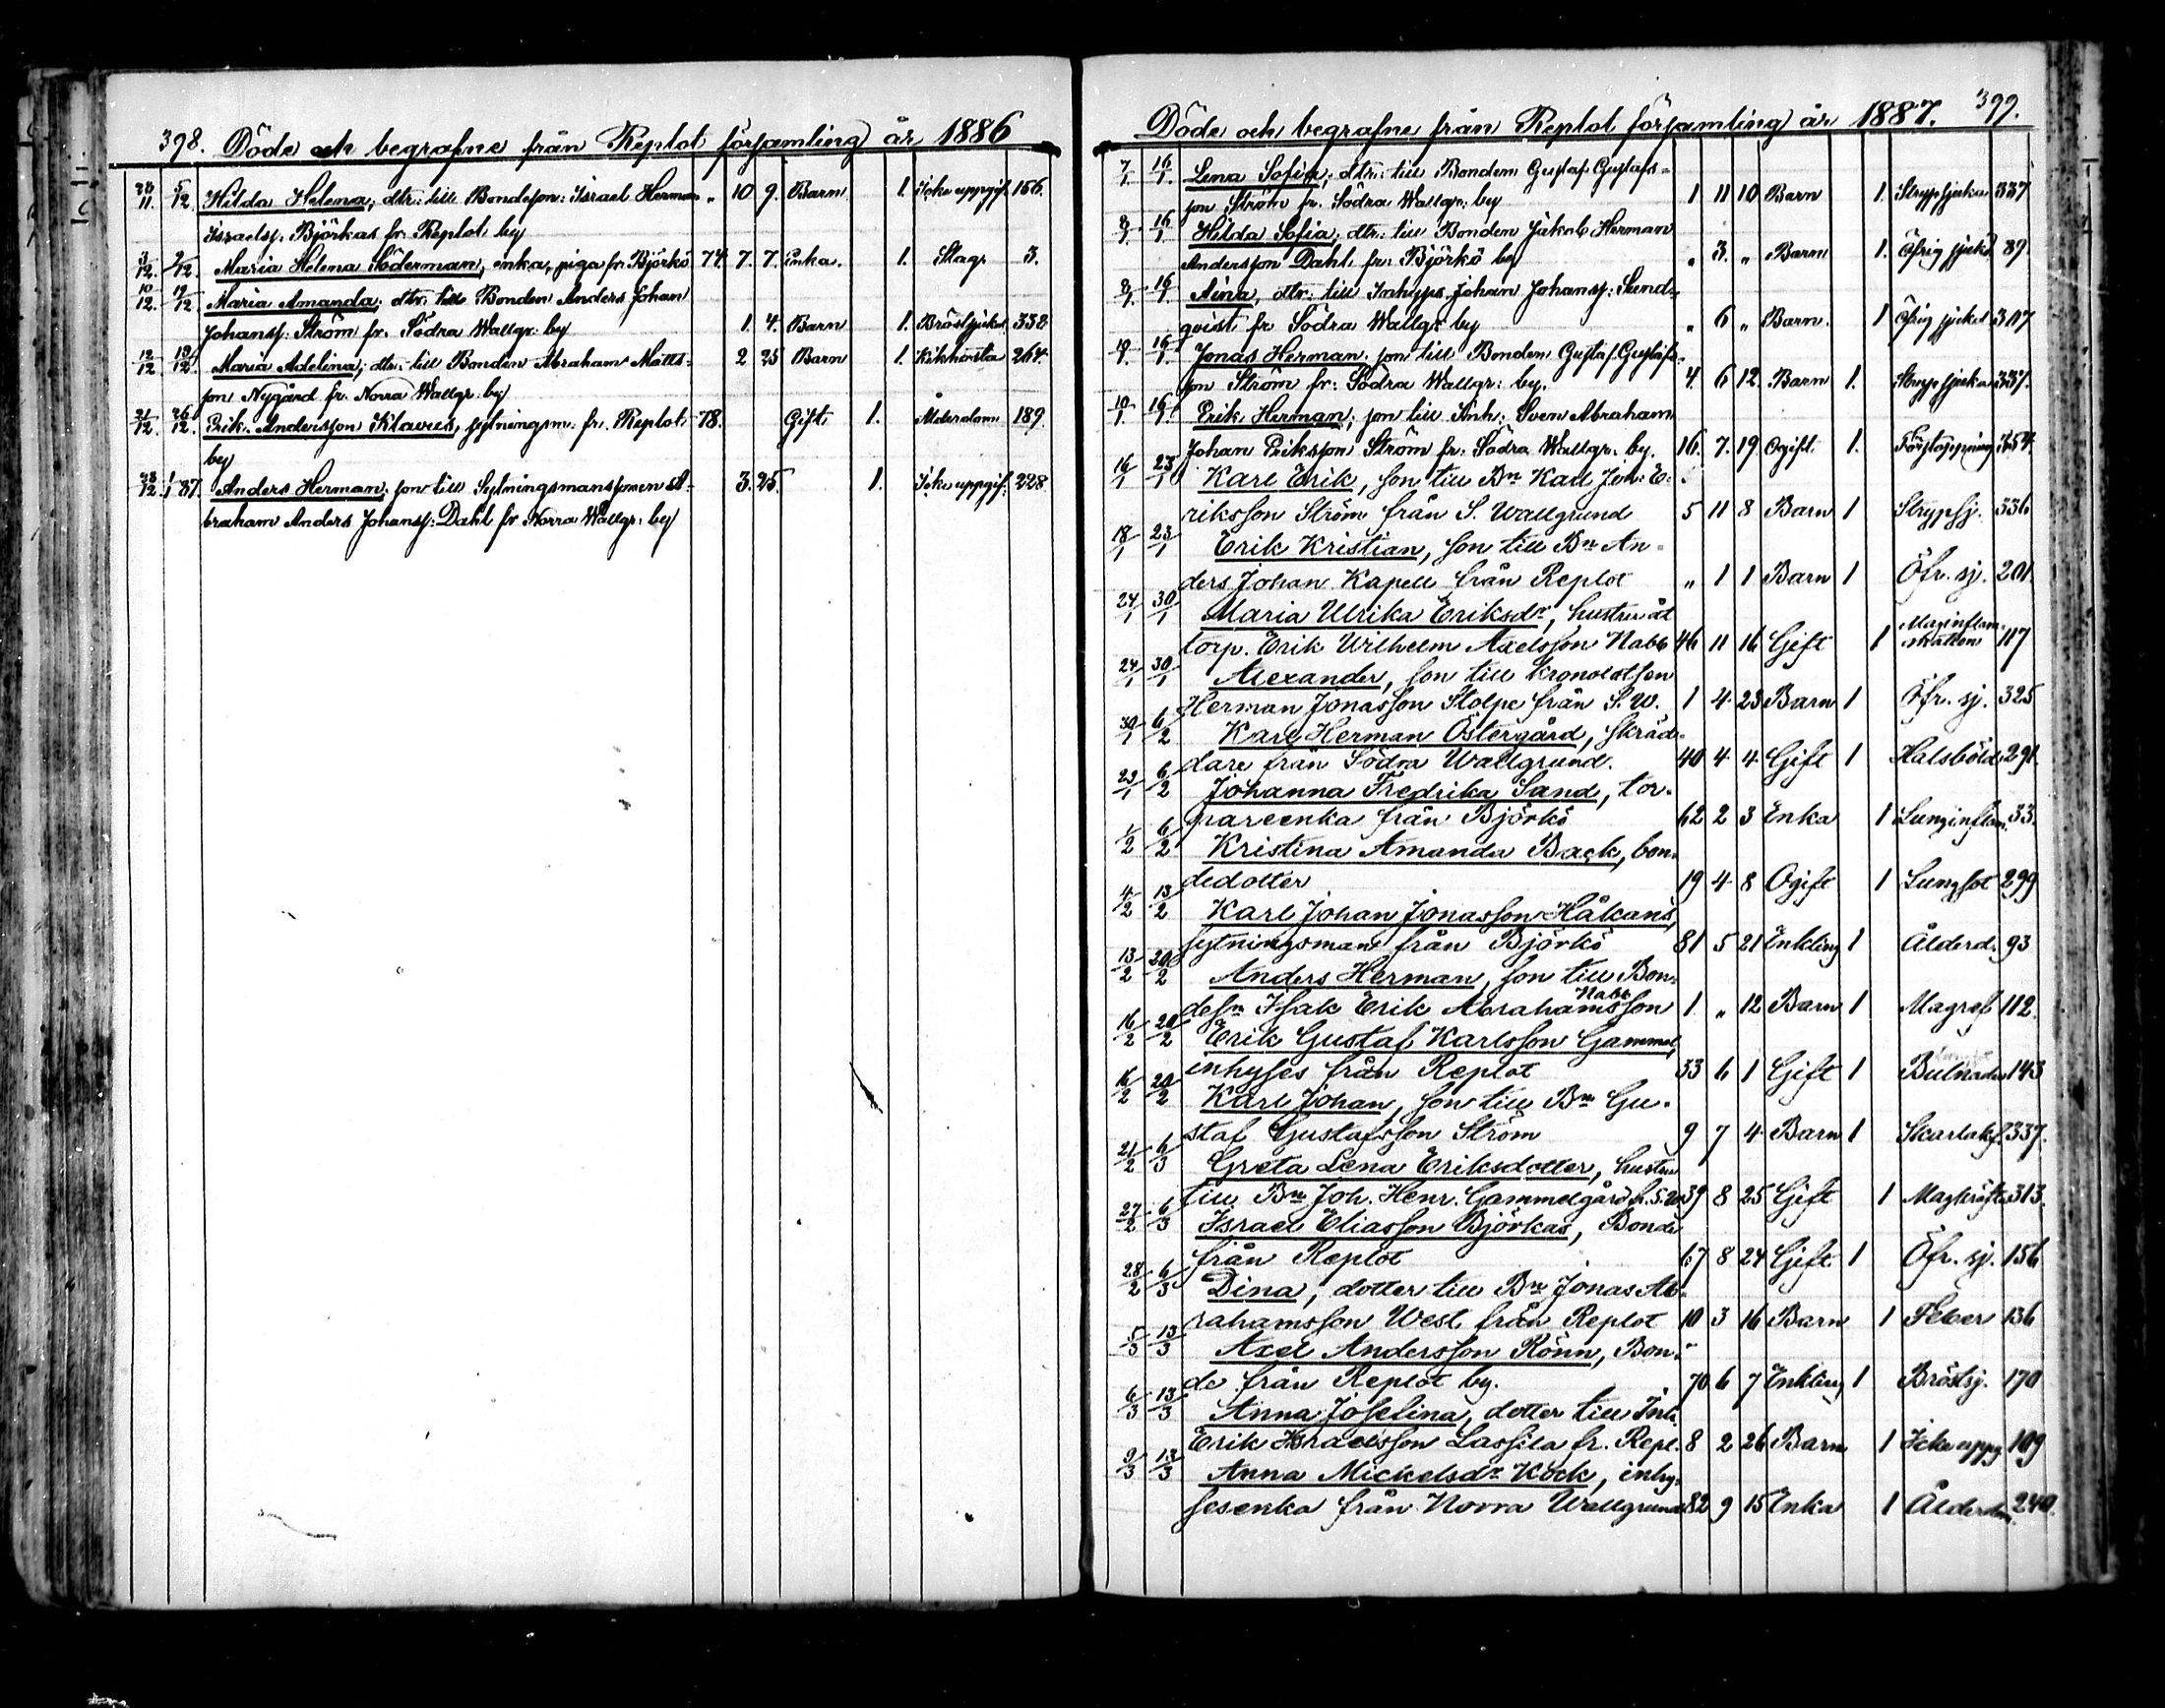 398. Döde och begrafne från Replot församling år 1886
28/11. 5/12 Hilda Helena, dtr: till Bondeson: Israel Herman „ 10 9. Barn 1. Icke uppgif. 156.
Israelss: Björkas fr. Replot by
3/12. 5/12. Maria Helena Söderman, enka, piga fr. Björkö 74. 7. 7. Enka. 1. Slag. 3.
10/12. 19/12 Maria Amanda, dtr: till Bonden Anders Johan
Johanss: Ström fr. Södra Wallgr. by 1. 4. Barn 1. Bröstsjukd. 338
12/12 19/12 Maria Adelina, dtr: till Bonden Abraham Matts- 2 25 Barn 1. Kikhosta 264.
son Nygård fr. Norra Wallgr. by
21/12. 26/12. Erik Andersson Klavus, sytningsm. fr. Replot 78. Gift 1. Ålderdom 189.
by
28/12 1/1 87. Anders Herman, son till Sytningsmanssonen A- 3. 25. 1. Icke uppgif. 228
braham Anders Johanss: Dahl fr Norra Wallgr: by
Döde och begrafne från Replot församling år 1887. 399.
7/1. 16/1. Lena Sofia, dtr: till Bonden Gustaf Gustafs-
son Ström fr. Södra Wallgr: by 1 11 10 Barn 1. Strypsjuka 337
8/1 16/1 Hilda Sofia, dtr: till Bonden Jakob Herman
Andersson Dahl. fr. Björkö by „ 3. „ Barn 1. Öfrig sjukd 89.
8/1 16/1 Aina, dtr: till Inhyses Johan Johanss: Sund-
qvist fr Södra Wallgr by „ 6 „ Barn. 1 Öfrig sjukd 307
10/1 16/1. Jonas Herman, son till Bonden Gustaf Gustafs-
son Ström fr. Södra Wallgr: by. 4. 6 12. Barn 1. Strypsjuka 337.
10/1 16/1 Erik Herman, son till Inh: Sven Abraham
Johan Eriksson Ström fr. Södra Wallgr. by. 16. 7. 19. Ogift. 1. Förstoppning 354.
16/1 23/1 Karl Erik, son till Bn Karl Joh. E-
riksson Ström från S. Wallgrund 5 11 8 Barn 1 Strypsj. 336
18/1 23/1 Erik Kristian, son till Bn An-
ders Johan Kapell från Replot „ 1 1 Barn 1 Öfr. sj. 201.
24/1 30/1 Maria Ulrika Eriksdr, hustru åt
torp. Erik Wilhelm Axelsson Nabb 46 11 16 Gift 1 Maginflam- 117
24/1 30/1 Alexander, son till Kronolotsen
Herman Jonasson Stolpe från S. W. 1 4 23 Barn 1 Öfr. sj. 325
30/1 6/2 Karl Herman Östergård, skräd-
dare från Södra Wallgrund. 40 4 4 Gift 1 Halsböld 291.
29/1 6/2 Johanna Fredrika Sand, tor-
pareenka från Björkö 62 2 3 Enka 1 Lunginflam. 33.
1/2 6/2 Kristina Amanda Back, bon-
dedotter 19 4 8 Ogift 1 Lungsot 299
4/2 13/2 Karl Johan Jonasson Håkans,
sytningsman från Björkö 81 5 21 Enkling 1 Ålderd. 93
13/2 20/2 Anders Herman, son till Bon-
desn Isak Erik Abrahamsson Nabb 1 „ 12 Barn 1 Magref 112.
16/2 20/2 Erik Gustaf Karlsson Gammel,
inhyses från Replot 33 6 1 Gift 1 Bulnader 143
16/2 20/2 Karl Johan, son till Bn Gu-
staf Gustafsson Ström 9 7 4 Barn 1 Skarlakf. 337.
21/2 6/3 Greta Lena Eriksdotter, hustru
till Bn Joh. Henr. Gammelgård fr. S. W. 39 8 25 Gift 1 Magkräfta 313.
27/2 6/3 Israel Eliasson Björkas, Bonde
från Replot 67 8 24 Gift 1 Öfr. sj. 156
28/2 6/3 Dina, dotter till Bn Jonas Ab-
rahamsson West från Replot 10 3 16 Barn 1 Feber 136
5/3 13/3 Axel Andersson Rönn, Bon-
de från Replot by. 70 6 7 Enkling 1 Bröstsj. 170
6/3 13/3 Anna Josefina, dotter till Inh.
Erik Israelsson Lassila fr. Repl. 8 2 26 Barn 1 Icke uppg 109
9/3 13/3 Anna Mickelsdr Kock, inhy-
sesenka från Norra Wallgrund 82 9 15 Enka 1 Ålderdom. 240.